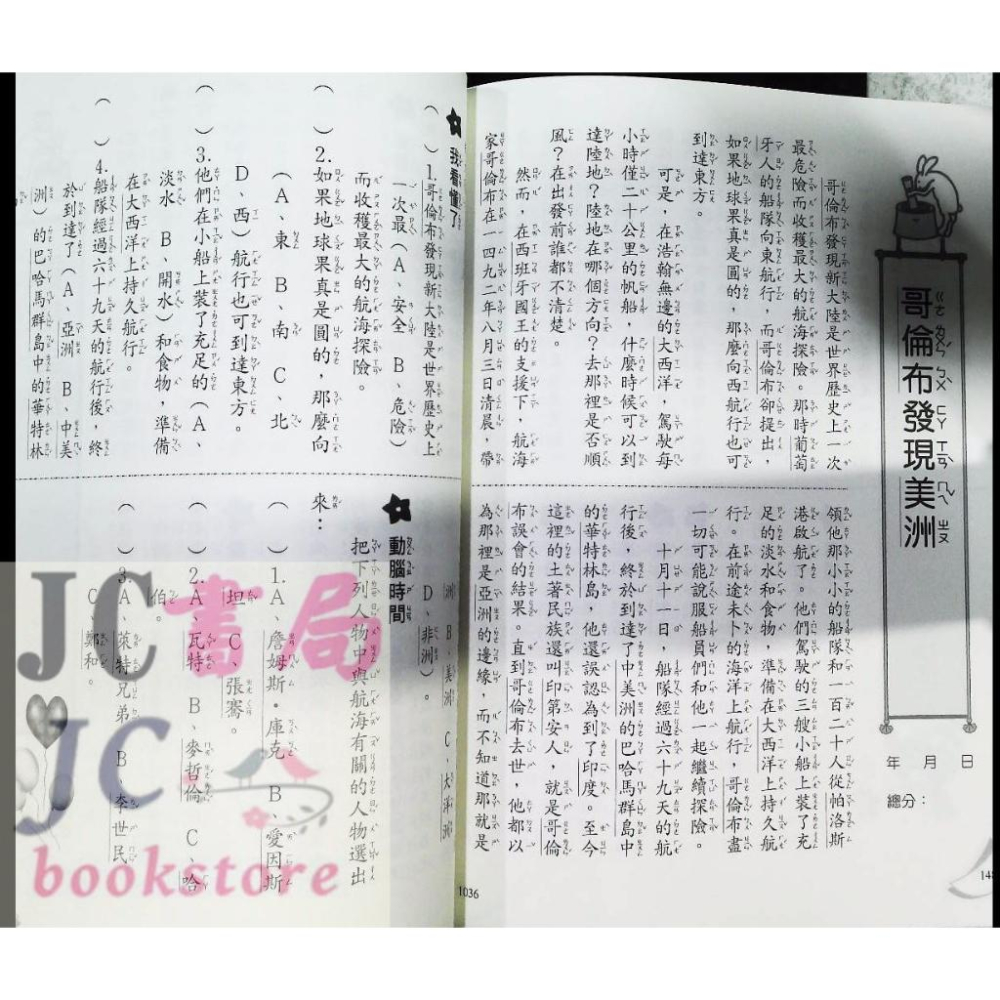 哥倫布發現美洲
年 月 日
總分：
哥倫布發現新大陸是世界歷史上一次
最危險而收穫最大的航海探險。那時葡萄
牙人的船隊向東航行，而哥倫布卻提出，
如果地球果真是圓的，那麼向西航行也可
到達東方。
可是，在浩翰無邊的大西洋，駕駛每
小時僅二十公里的帆船，什麼時候可以到
達陸地？陸地在哪個方向？去那裡是否順
風？在出發前誰都不清楚。
然而，在西班牙國王的支援下，航海
家哥倫布在一四九二年八月三日清晨，帶
領他那小小的船隊和一百二十人從帕洛斯
港啟航了。他們駕駛的三艘小船上裝了充
足的淡水和食物，準備在大西洋上持久航
行。在前途未卜的海洋上航行，哥倫布盡
一切可能說服船員們和他一起繼續探險。
十月十一日，船隊經過六十九天的航
行後，終於到達了中美洲的巴哈馬群島中
的華特林島，他還誤認為到了印度。至今
這裡的土著民族還叫印第安人，就是哥倫
布誤會的結果。直到哥倫布去世，他都以
為那裡是亞洲的邊緣，而不知道那就是
1036
我看懂了
（ ）1.哥倫布發現新大陸是世界歷史上
一次最（A、安全 B、危險）
而收穫最大的航海探險。
（ ）2.如果地球果真是圓的，那麼向
（A、東 B、南 C、北
D、西）航行也可到達東方。
（ ）3.他們在小船上裝了充足的（A、
淡水 B、開水）和食物，準備
在大西洋上持久航行。
（ ）4.船隊經過六十九天的航行後，終
於到達了（A、亞洲 B、中美
洲）的巴哈馬群島中的華特林
洲 B、美洲 C、大洋洲
D、非洲）。
動腦時間
把下列人物中與航海有關的人物選出
來：
（ ）1.A、詹姆斯·庫克 B、愛因斯
坦 C、張騫。
（ ）2.A、瓦特 B、麥哲倫 C、哈
伯。
（ ）3.A、萊特兄弟 B、李世民
C、鄭和。
JC書局
JC
bookstore